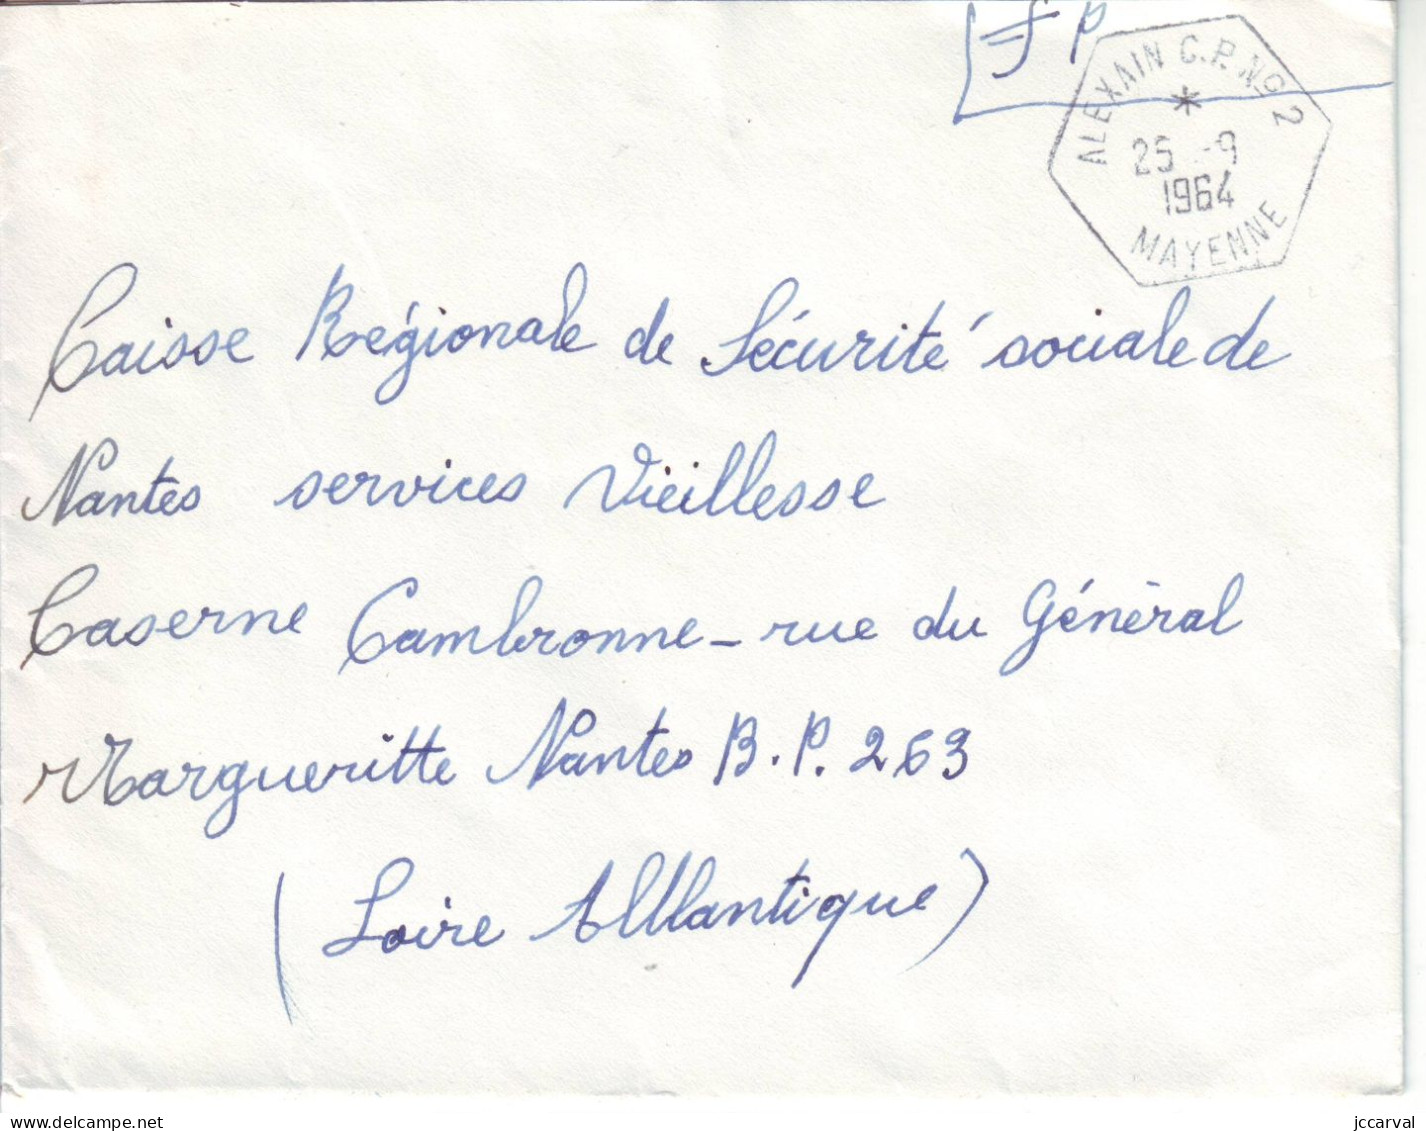 F P
ALEXAIN C.P. Nº 2
*
25 -9
1964
MAYENNE
Caisse Régionale de Sécurité sociale de
Nantes services Vieillesse
Caserne Cambronne - rue du Général
Margueritte Nantes B.P. 263
(Loire Atlantique)
delcampe.net
jccarval